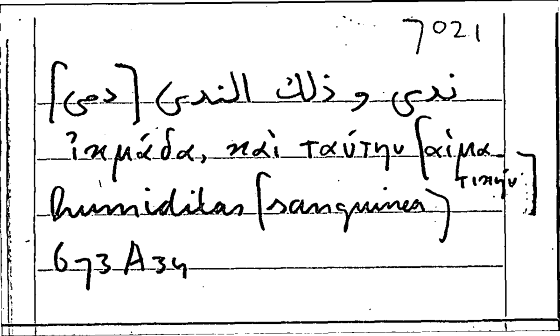 7021
ندى و ذلك الندى [دمى]
ἰκμάδα, καὶ ταύτην [αἱμα
τικήν]
humiditas [sanguinea]
673 A34